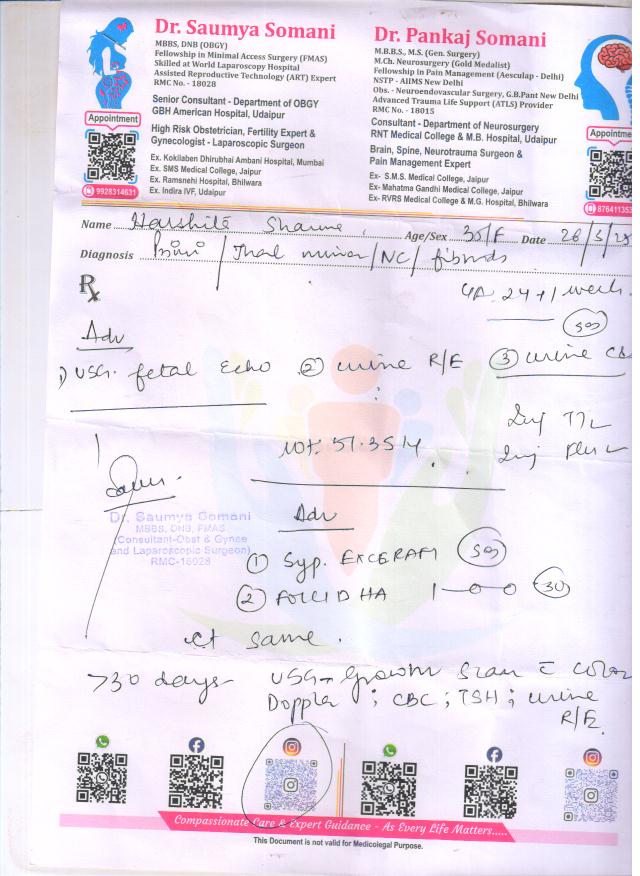 Dr. Saumya Somani
MBBS, DNB (OBGY)
Fellowship in Minimal Access Surgery (FMAS)
Skilled at World Laparoscopy Hospital
Assisted Reproductive Technology (ART) Expert
RMC No. - 18028
Senior Consultant - Department of OBGY
GBH American Hospital, Udaipur
High Risk Obstetrician, Fertility Expert &
Gynecologist - Laparoscopic Surgeon
Ex. Kokilaben Dhirubhai Ambani Hospital, Mumbai
Ex. SMS Medical College, Jaipur
Ex. Ramsnehi Hospital, Bhilwara
Ex. Indira IVF, Udaipur
Appointment
9928314631
Dr. Pankaj Somani
M.B.B.S., M.S. (Gen. Surgery)
M.Ch. Neurosurgery (Gold Medalist)
Fellowship in Pain Management (Aesculap - Delhi)
NSTP - AIIMS New Delhi
Obs. - Neuroendovascular Surgery, G.B.Pant New Delhi
Advanced Trauma Life Support (ATLS) Provider
RMC No. - 18015
Consultant - Department of Neurosurgery
RNT Medical College & M.B. Hospital, Udaipur
Brain, Spine, Neurotrauma Surgeon &
Pain Management Expert
Ex- S.M.S. Medical College, Jaipur
Ex- Mahatma Gandhi Medical College, Jaipur
Ex- RVRS Medical College & M.G. Hospital, Bhilwara
Appointme
876411353
Name Age/Sex 35/F Date 26/5/25
Diagnosis Primi / Thal minor / NC / fibroids
Rx
24+1 week
Adv
1) USG. fetal Echo ② urine R/E ③ urine
Inj
Inj
wt. 57.35
Dr. Saumya Somani
MBBS, DNB, FMAS
(Consultant-Obst & Gynae
and Laparoscopic Surgeon)
RMC-18028
Adv
① Syp.
② FOLLIDHA 1-0-0 30
ct same.
>30 days USG- Growth Scan c̄ color
Doppler ; CBC ; TSH ; urine
R/E.
Compassionate Care & Expert Guidance - As Every Life Matters.....
This Document is not valid for Medicolegal Purpose.